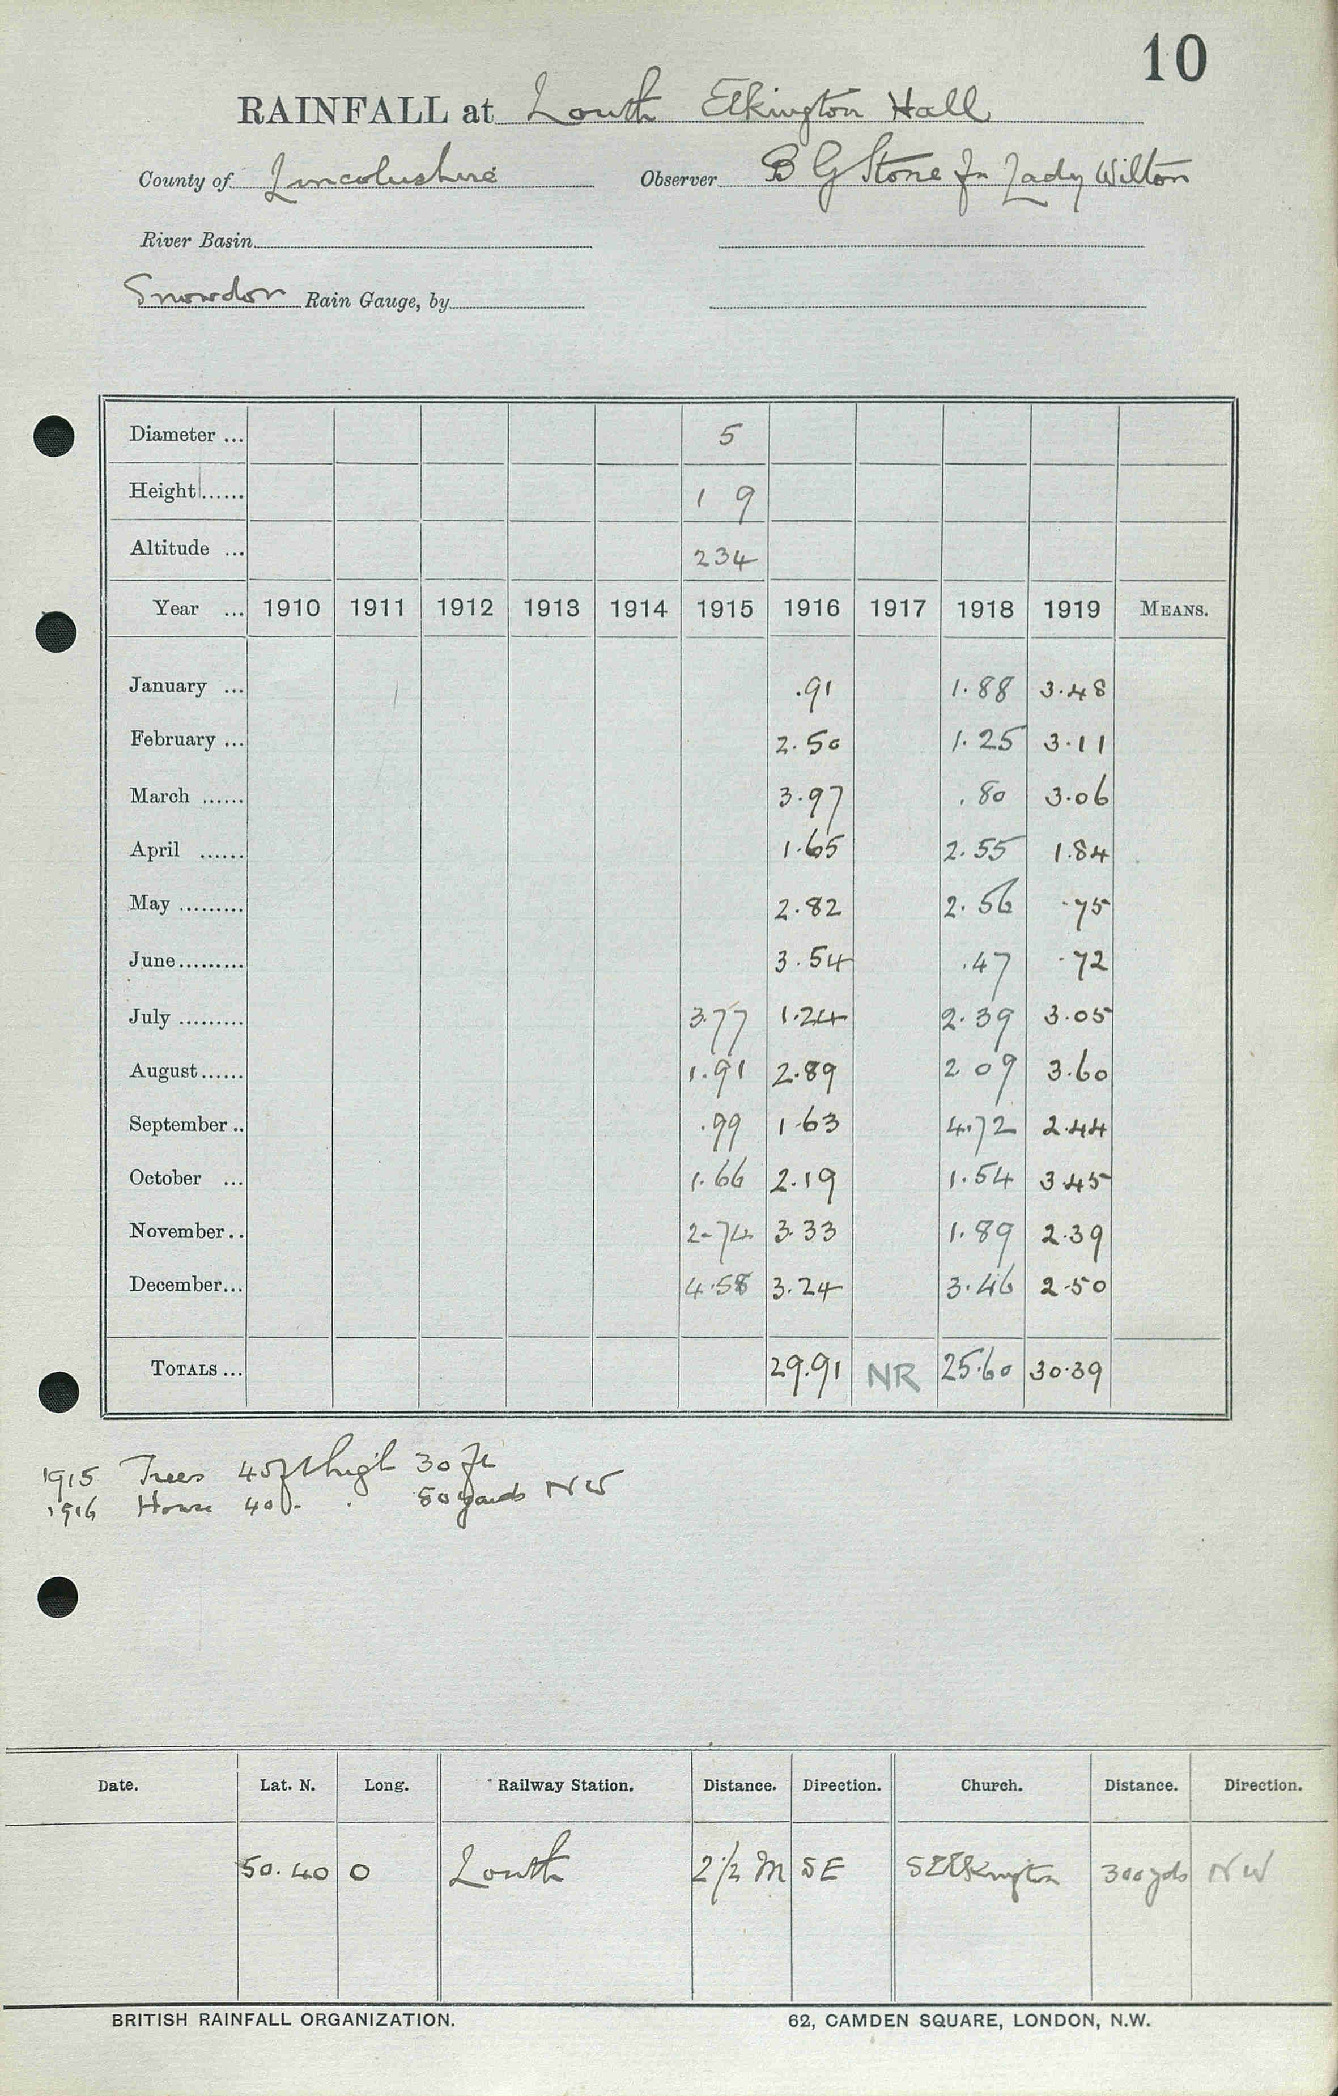 10
RAINFALL at Louth Elkington Hall
County of Lincolnshire Observer B G Stone for Lady Wilton
River Basin
Snowdon Rain Gauge, by
Diameter ... 5
Height ...... 1 9
Altitude ... 234
Year ... 1910 1911 1912 1913 1914 1915 1916 1917 1918 1919 MEANS.
January ... .91 1.88 3.48
February ... 2.50 1.25 3.11
March ...... 3.97 .80 3.06
April ...... 1.65 2.55 1.84
May ......... 2.82 2.56 .75
June ......... 3.54 .47 .72
July ......... 3.77 1.24 2.39 3.05
August ...... 1.91 2.89 2 09 3.60
September .. .99 1.63 4.72 2.44
October ... 1.66 2.19 1.54 3.45
November .. 2.74 3.33 1.89 2.39
December ... 4.58 3.24 3.46 2.50
TOTALS ... 29.91 NR 25.60 30.39
1915 Trees 45ft high 30 ft
1916 House 40 50 yards NW
Date. Lat. N. Long. Railway Station. Distance. Direction. Church. Distance. Direction.
50.40 0 Louth 2 1/2 M SE S Elkington 300 yds NW
BRITISH RAINFALL ORGANIZATION. 62, CAMDEN SQUARE, LONDON, N.W.